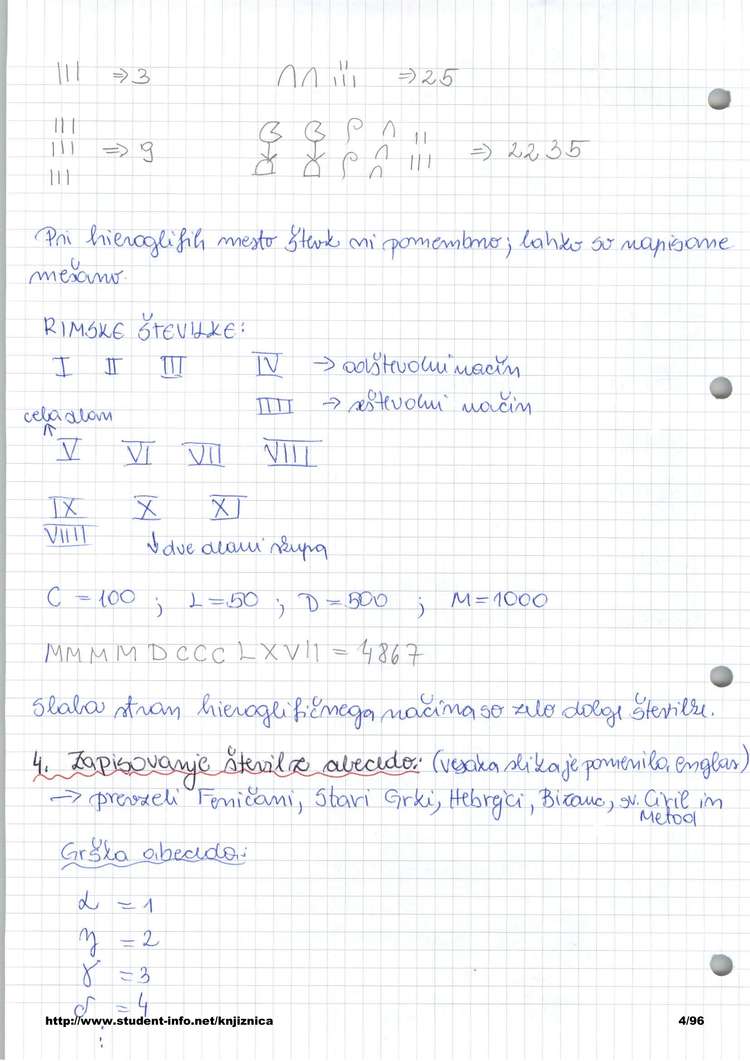 ||| ⇒ 3 ∩∩ ||||| ⇒ 25
||| ||| ||| ⇒ 9 ⇒ 2235
Pri hieroglifih mesto števk ni pomembno; lahko so napisane
mešano.
RIMSKE ŠTEVILKE:
I II III IV → odštevalni način
IIII → seštevalni način
cela dlan
↑
V VI VII VIII
IX X XI
VIIII ↓ dve dlani skupaj
C = 100 ; L = 50 ; D = 500 ; M = 1000
MMMM D CCC L X V I I = 4867
Slaba stran hieroglifičnega načina so zelo dolge številke.
4. Zapisovanje števil z abecedo: (vsaka slika je pomenila en glas)
→ prevzeli Feničani, Stari Grki, Hebrejci, Bizanc, sv. Ciril in
Metod
Grška abeceda:
α = 1
η = 2
γ = 3
δ = 4
⋮
http://www.student-info.net/knjiznica 4/96